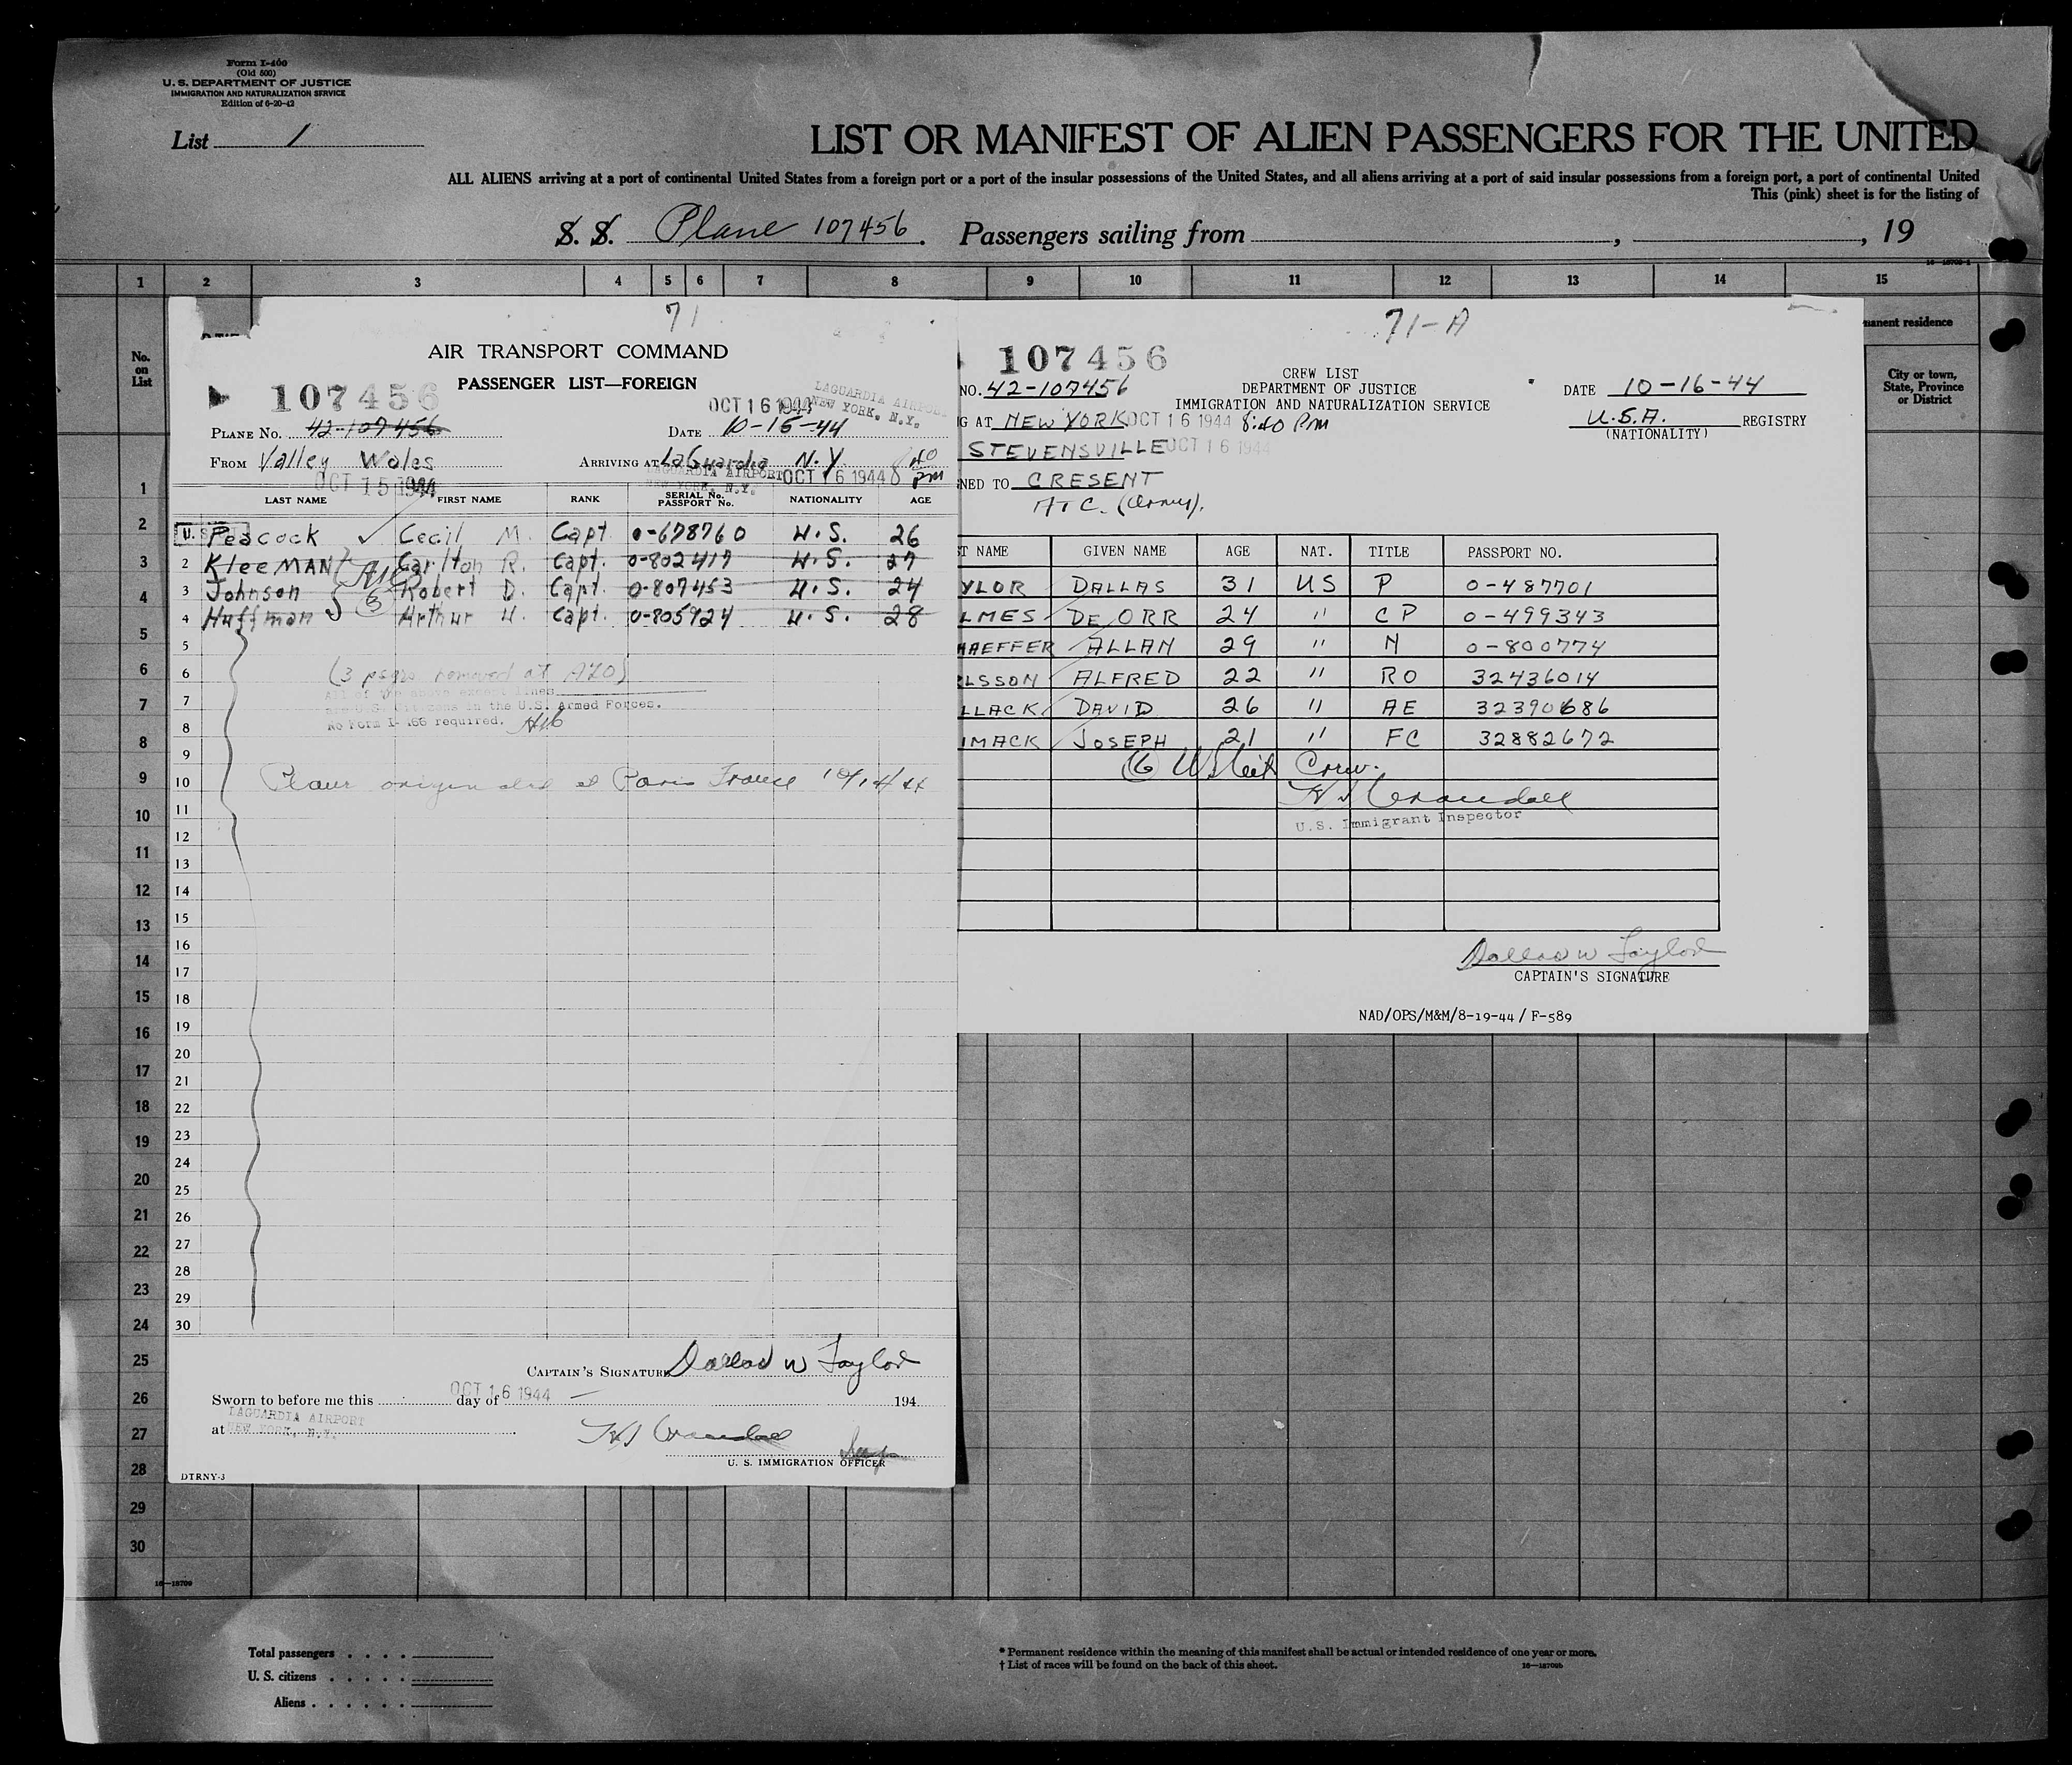 Form I-400
(Old 500)
U. S. DEPARTMENT OF JUSTICE
IMMIGRATION AND NATURALIZATION SERVICE
Edition of 6-20-42
List 1
LIST OR MANIFEST OF ALIEN PASSENGERS FOR THE UNITED
ALL ALIENS arriving at a port of continental United States from a foreign port or a port of the insular possessions of the United States, and all aliens arriving at a port of said insular possessions from a foreign port, a port of continental United
This (pink) sheet is for the listing of
S. S. Plane 107456. Passengers sailing from , , 19
1 2 3 4 5 6 7 8 9 10 11 12 13 14 15
No. on List
manent residence
City or town, State, Province or District
71
AIR TRANSPORT COMMAND
PASSENGER LIST—FOREIGN
107456
OCT 16 1944
LAGUARDIA AIRPORT
NEW YORK, N.Y.
PLANE NO. 42-107456
DATE 10-15-44
FROM Valley Wales
ARRIVING AT LaGuardia N.Y. 8 40 PM
OCT 15 1944
LAGUARDIA AIRPORT OCT 16 1944
NEW YORK, N.Y.
LAST NAME FIRST NAME RANK SERIAL No. PASSPORT No. NATIONALITY AGE
U.S. Peacock ✓ Cecil M. Capt 0-678760 U.S. 26
2 KleeMAN Carlton R. Capt. 0-802417 U.S. 27
3 Johnson Robert D. Capt. 0-807453 U.S. 24
4 Huffman (3) Arthur H. Capt. 0-805924 U.S. 28
5
6 (3 psgrs removed at AZO)
All of the above except lines
7 are U.S. Citizens in the U.S. Armed Forces.
8 No Form I-466 required.
9
10 Plane originated at Paris France 10/14/44
11
12
13
14
15
16
17
18
19
20
21
22
23
24
25
26
27
28
29
30
CAPTAIN'S SIGNATURE Dallas W Taylor
Sworn to before me this day of OCT 16 1944 194
at LAGUARDIA AIRPORT
NEW YORK, N.Y.
H J Crandall
U. S. IMMIGRATION OFFICER
DTRNY-3
71-A
107456
CREW LIST
NO. 42-107456
DEPARTMENT OF JUSTICE
DATE 10-16-44
IMMIGRATION AND NATURALIZATION SERVICE
G AT NEW YORK OCT 16 1944 8:40 PM
U.S.A. REGISTRY
(NATIONALITY)
STEVENSVILLE OCT 16 1944
NED TO CRESENT
ATC. (Army).
T NAME GIVEN NAME AGE NAT. TITLE PASSPORT NO.
YLOR DALLAS 31 US P 0-487701
LMES DE ORR 24 " CP 0-499343
HAEFFER ALLAN 29 " N 0-800774
LSSON ALFRED 22 " RO 32436014
LLACK DAVID 26 " AE 32390686
IMACK JOSEPH 21 " FC 32882672
(6) US Cit Crew.
H J Crandall
U.S. Immigrant Inspector
Dallas W Taylor
CAPTAIN'S SIGNATURE
NAD/OPS/M&M/8-19-44 / F-589
1
2
3
4
5
6
7
8
9
10
11
12
13
14
15
16
17
18
19
20
21
22
23
24
25
26
27
28
29
30
16—18709
Total passengers
U. S. citizens
Aliens
* Permanent residence within the meaning of this manifest shall be actual or intended residence of one year or more.
† List of races will be found on the back of this sheet.